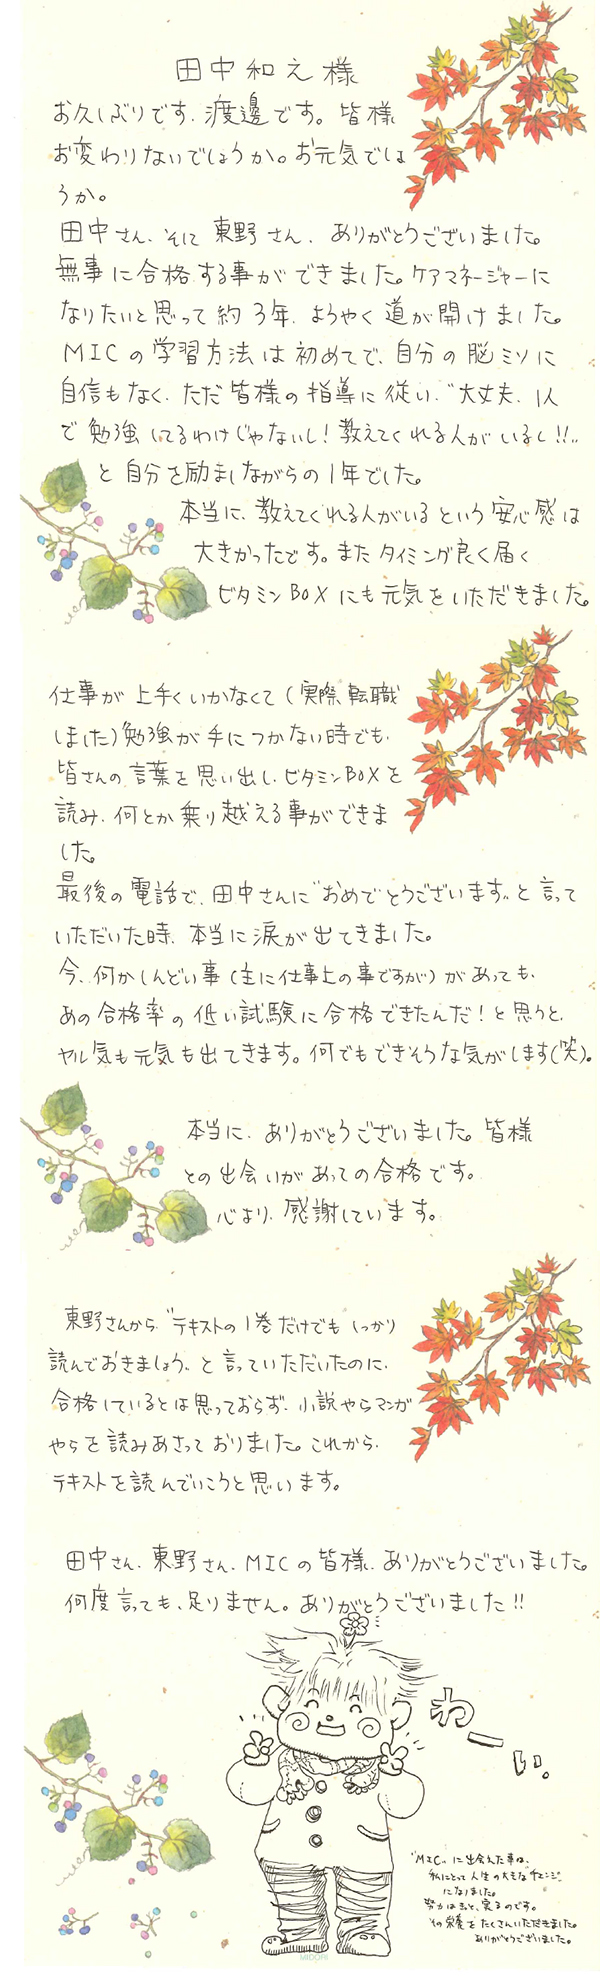 田中和え様
お久しぶりです、渡邊です。皆様
お変わりないでしょうか。お元気でしょ
うか。
田中さん、そして東野さん、ありがとうございました。
無事に合格する事ができました。ケアマネージャーに
なりたいと思って約3年、ようやく道が開けました。
MICの学習方法は初めてで、自分の脳ミソに
自信もなく、ただ皆様の指導に従い、"大丈夫、1人
で勉強してるわけじゃないし!教えてくれる人がいるし!!"
と自分を励ましながらの1年でした。
本当に、教えてくれる人がいるという安心感は
大きかったです。またタイミング良く届く
ビタミンBOXにも元気をいただきました。
仕事が上手くいかなくて(実際、転職
しました)勉強が手につかない時でも、
皆さんの言葉を思い出し、ビタミンBOXを
読み、何とか乗り越える事ができま
した。
最後の電話で、田中さんに"おめでとうございます"と言って
いただいた時、本当に涙が出てきました。
今、何かしんどい事(主に仕事上の事ですが)があっても、
あの合格率の低い試験に合格できたんだ!と思うと、
ヤル気も元気も出てきます。何でもできそうな気がします(笑)。
本当に、ありがとうございました。皆様
との出会いがあっての合格です。
心より、感謝しています。
東野さんから、"テキストの1巻だけでもしっかり
読んでおきましょう、と言っていただいたのに、
合格しているとは思っておらず、小説やらマンガ
やらを読みあさっておりました。これから、
テキストを読んでいこうと思います。
田中さん、東野さん、MICの皆様、ありがとうございました。
何度言っても、足りません。ありがとうございました!!
わーい。
"MIC"に出会えた事は、
私にとって人生の大きな"チェンジ"
になりました。
努力はきっと、実るのです。
その栄養をたくさんいただきました。
ありがとうございました。
MIDORI